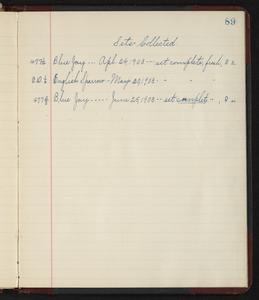 89
Sets Collected
477½ Blue Jay... Apl. 24, 1903 -- set complete, fresh,
O.O.½ English Sparrow - May 20, 1903 -- " " "
477½ Blue Jay..... June 25, 1903 -- set complet --,